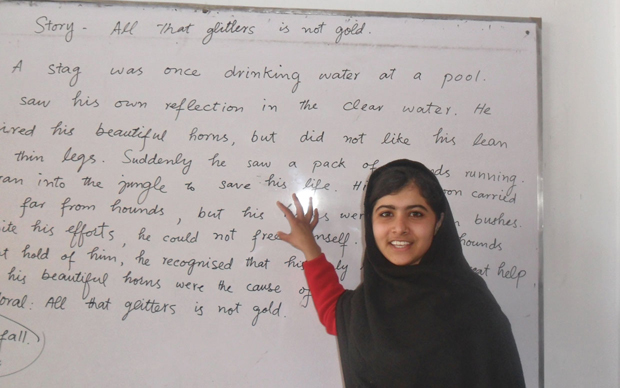 Story - All that glitters is not gold.
A stag was once drinking water at a pool.
saw his own reflection in the clear water. He
ired his beautiful horns, but did not like his lean
thin legs. Suddenly he saw a pack of nds running.
ran into the jungle to save his life. Hi on carried
far from hounds, but his s wer bushes.
ite his efforts, he could not free mself. hounds
t hold of him, he recognised that his ly eat help
his beautiful horns were the cause of
oral: All that glitters is not gold.
fall.